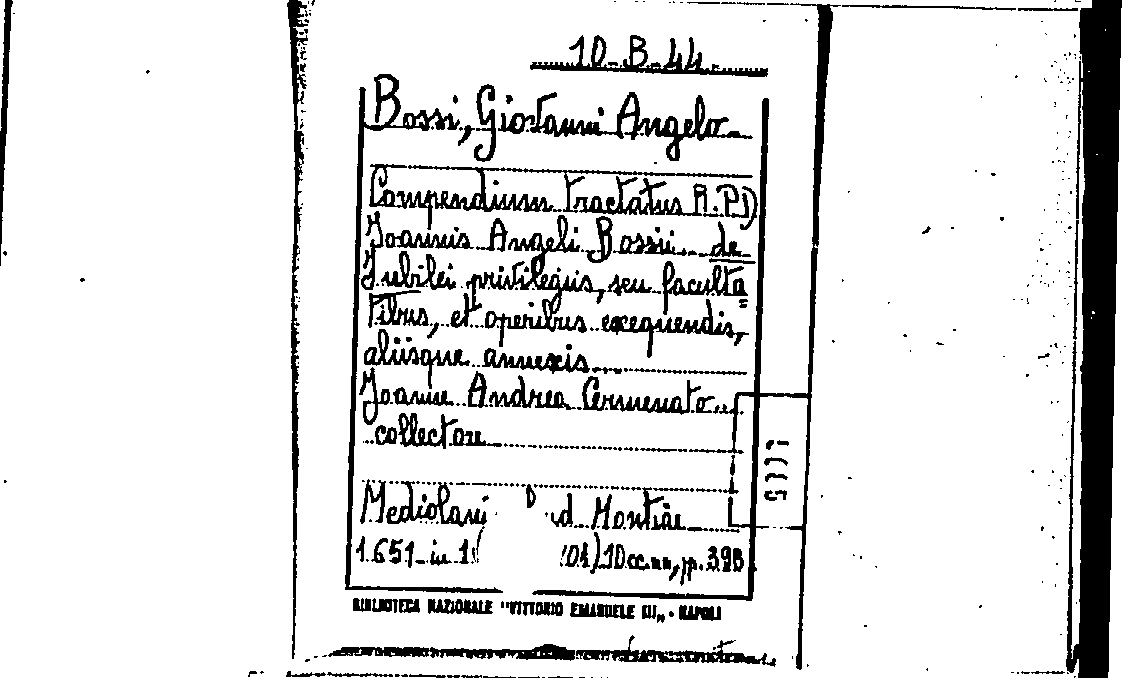 10-B-44.
Bossi, Giovanni Angelo
Compendium tractatus R.P.D
Joannis Angeli Bossii... de
Jubilei privilegiis, seu faculta=
tibus, et operibus exequendis,
aliisque annexis...
Joanne Andrea Cermenato...
collectore
Mediolani d Montiae
1651 in 1 10cc.nn, pp. 398
BIBLIOTECA NAZIONALE "VITTORIO EMANUELE III" - NAPOLI